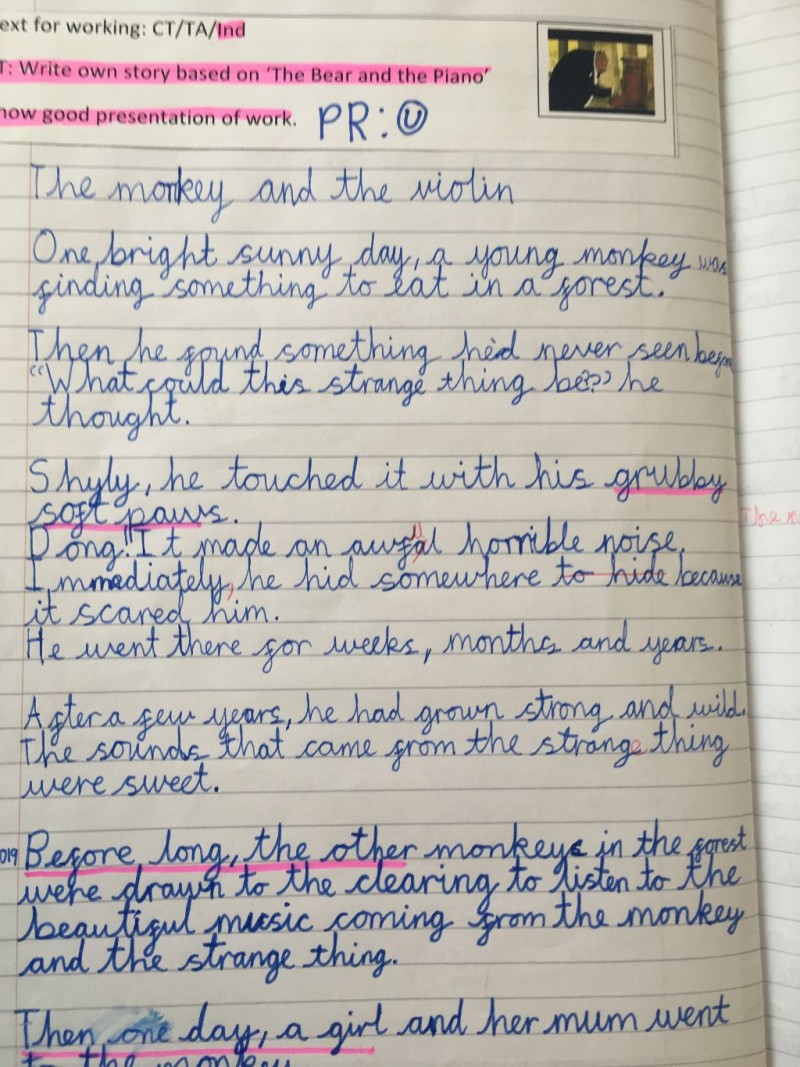 ext for working: CT/TA/Ind
T: Write own story based on 'The Bear and the Piano'
how good presentation of work.
PR:
The monkey and the violin
One bright sunny day, a young monkey was
finding something to eat in a forest.
Then he found something he'd never seen before
"What could this strange thing be??" he
thought.
Shyly, he touched it with his grubby
soft paws.
Dong! It made an awful horrible noise.
Immediately, he hid somewhere to hide because
it scared him.
He went there for weeks, months and years.
After a few years, he had grown strong and wild.
The sounds that came from the strange thing
were sweet.
019
Before long, the other monkeys in the forest
were drawn to the clearing to listen to the
beautiful music coming from the monkey
and the strange thing.
Then one day, a girl and her mum went
to the monkey